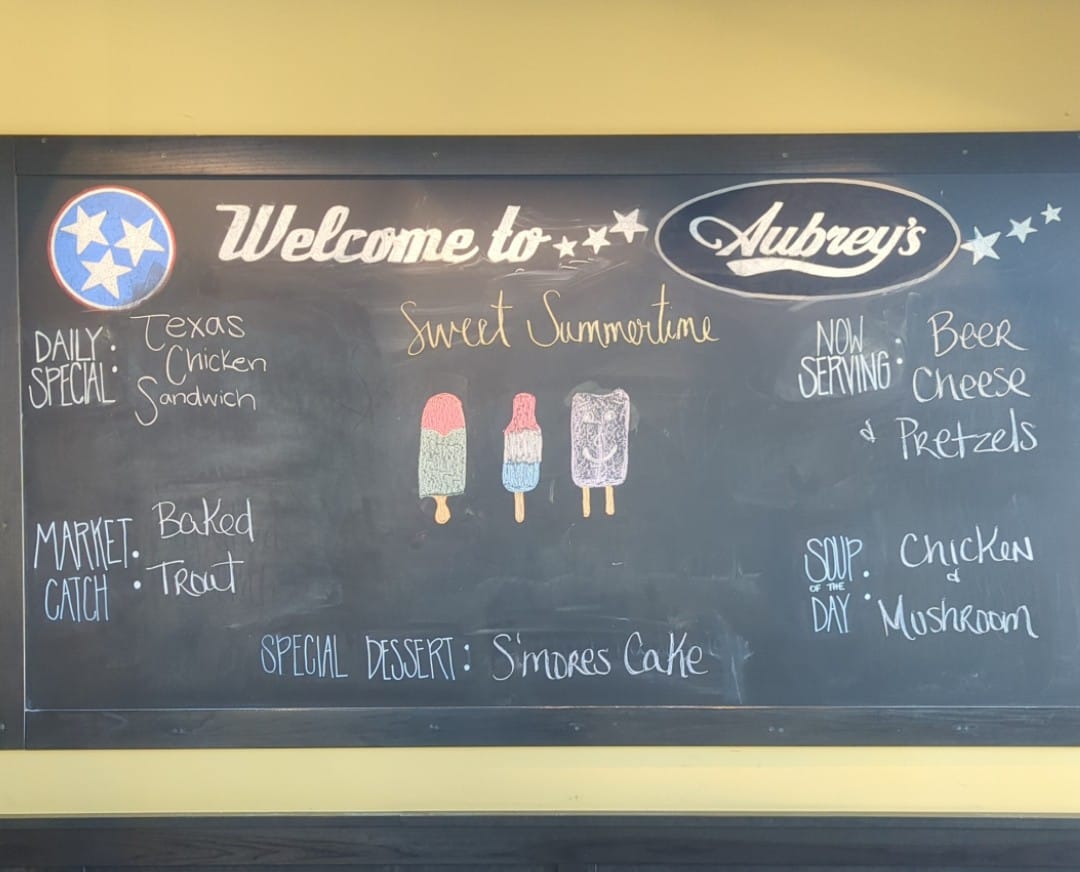 Welcome to Aubrey's
Sweet Summertime
DAILY SPECIAL:
Texas
Chicken
Sandwich
MARKET CATCH:
Baked
Trout
NOW SERVING:
Beer
Cheese
& Pretzels
SOUP OF THE DAY:
Chicken
&
Mushroom
SPECIAL DESSERT: S'mores Cake